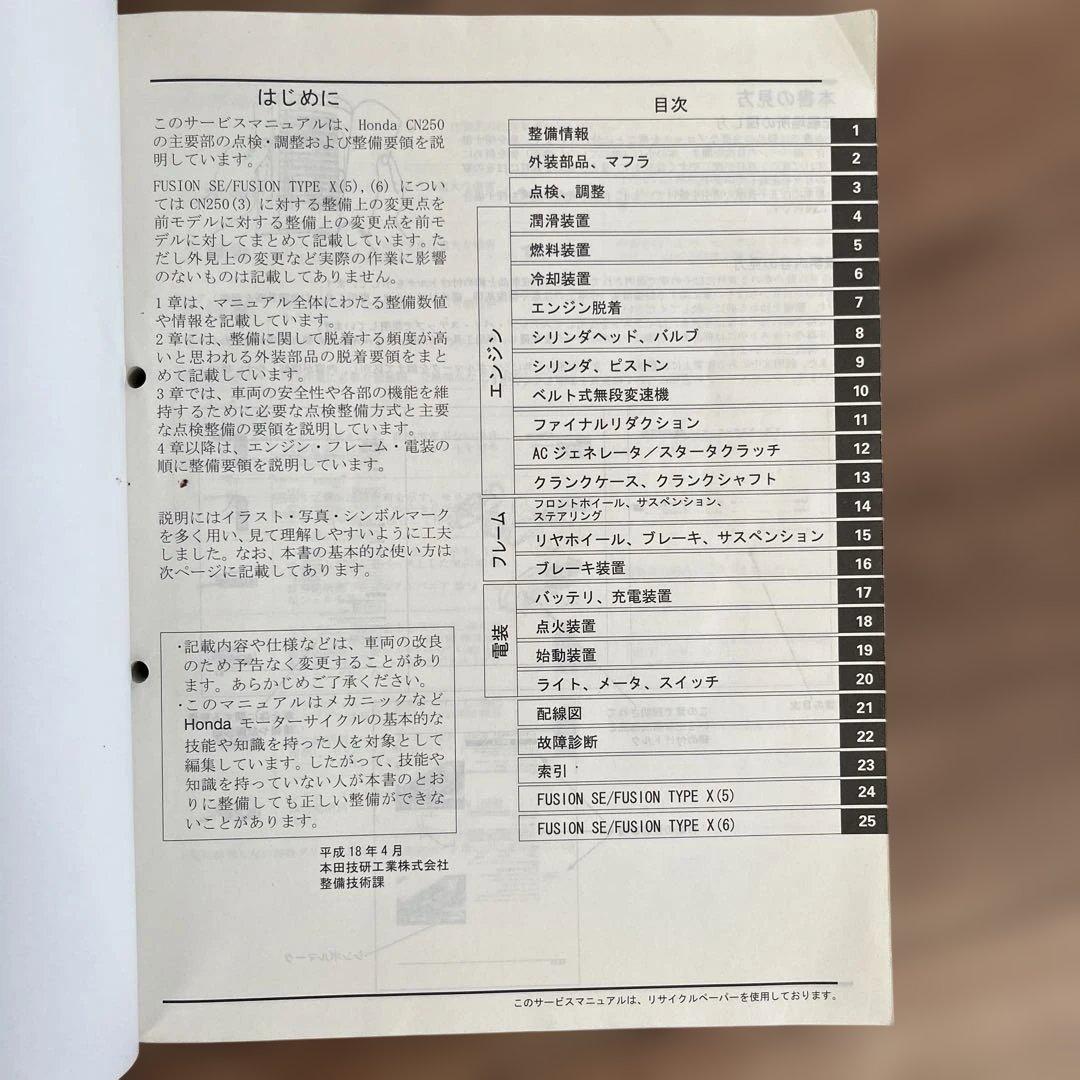 はじめに
このサービスマニュアルは、Honda CN250
の主要部の点検・調整および整備要領を説
明しています。
FUSION SE/FUSION TYPE X(5), (6) につい
ては CN250(3) に対する整備上の変更点を
前モデルに対する整備上の変更点を前モ
デルに対してまとめて記載しています。た
だし外見上の変更など実際の作業に影響
のないものは記載してありません。
1 章は、マニュアル全体にわたる整備数値
や情報を記載しています。
2 章には、整備に関して脱着する頻度が高
いと思われる外装部品の脱着要領をまと
めて記載しています。
3 章では、車両の安全性や各部の機能を維
持するために必要な点検整備方式と主要
な点検整備の要領を説明しています。
4 章以降は、エンジン・フレーム・電装の
順に整備要領を説明しています。
説明にはイラスト・写真・シンボルマーク
を多く用い、見て理解しやすいように工夫
しました。なお、本書の基本的な使い方は
次ページに記載してあります。
・記載内容や仕様などは、車両の改良
のため予告なく変更することがあり
ます。あらかじめご了承ください。
・このマニュアルはメカニックなど
Honda モーターサイクルの基本的な
技能や知識を持った人を対象として
編集しています。したがって、技能や
知識を持っていない人が本書のとお
りに整備しても正しい整備ができな
いことがあります。
平成 18 年 4 月
本田技研工業株式会社
整備技術課
目次
整備情報 1
外装部品、マフラ 2
点検、調整 3
エンジン
潤滑装置 4
燃料装置 5
冷却装置 6
エンジン脱着 7
シリンダヘッド、バルブ 8
シリンダ、ピストン 9
ベルト式無段変速機 10
ファイナルリダクション 11
AC ジェネレータ／スタータクラッチ 12
クランクケース、クランクシャフト 13
フレーム
フロントホイール、サスペンション、
ステアリング 14
リヤホイール、ブレーキ、サスペンション 15
ブレーキ装置 16
電装
バッテリ、充電装置 17
点火装置 18
始動装置 19
ライト、メータ、スイッチ 20
配線図 21
故障診断 22
索引 23
FUSION SE/FUSION TYPE X(5) 24
FUSION SE/FUSION TYPE X(6) 25
このサービスマニュアルは、リサイクルペーパーを使用しております。